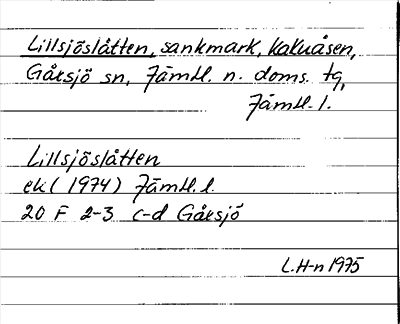 Lillsjöslåtten, sankmark, Kaluåsen,
Gåxsjö sn, Jämtl. n. doms. tg,
Jämtl. l.
Lillsjöslåtten
ek (1974) Jämtl. l.
20 F 2-3 c-d Gåxsjö
L.H-n 1975